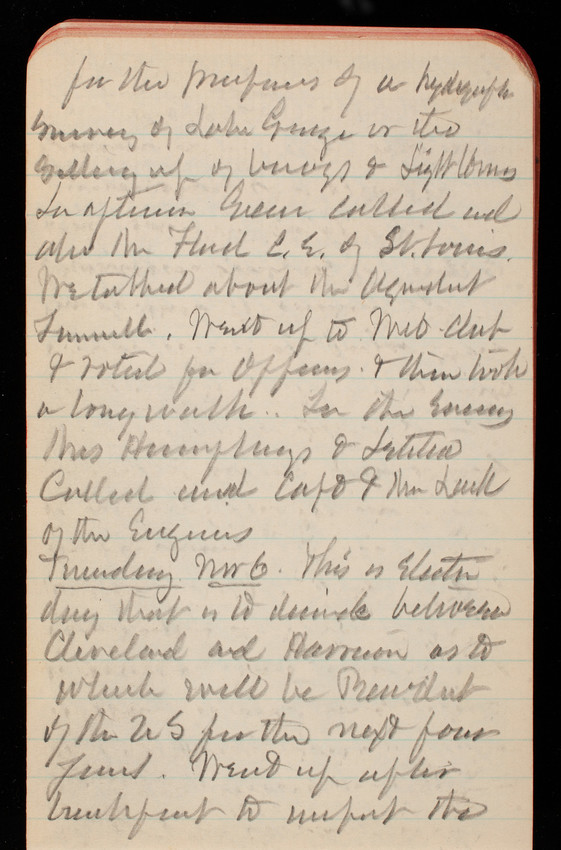 for the purposes of a hydrografh
Survey of Lake George or the
Setting up of buoys & Light boms
In afternoon Green called and
also Mr Flad C.E. of St. Louis.
We talked about the Aqueduct
Tunnell. Went up to Met. Club
& voted for Officers. & then took
a long walk. In the Evening
Mrs Humphreys & Letitia
Called and Capt & Mrs Lusk
of the Engineers
Tuesday Nov 6. This is Election
day that is to decide between
Cleveland and Harrison as to
which will be President
of the US for the next four
Years. Went up after
breakfast to inspect the